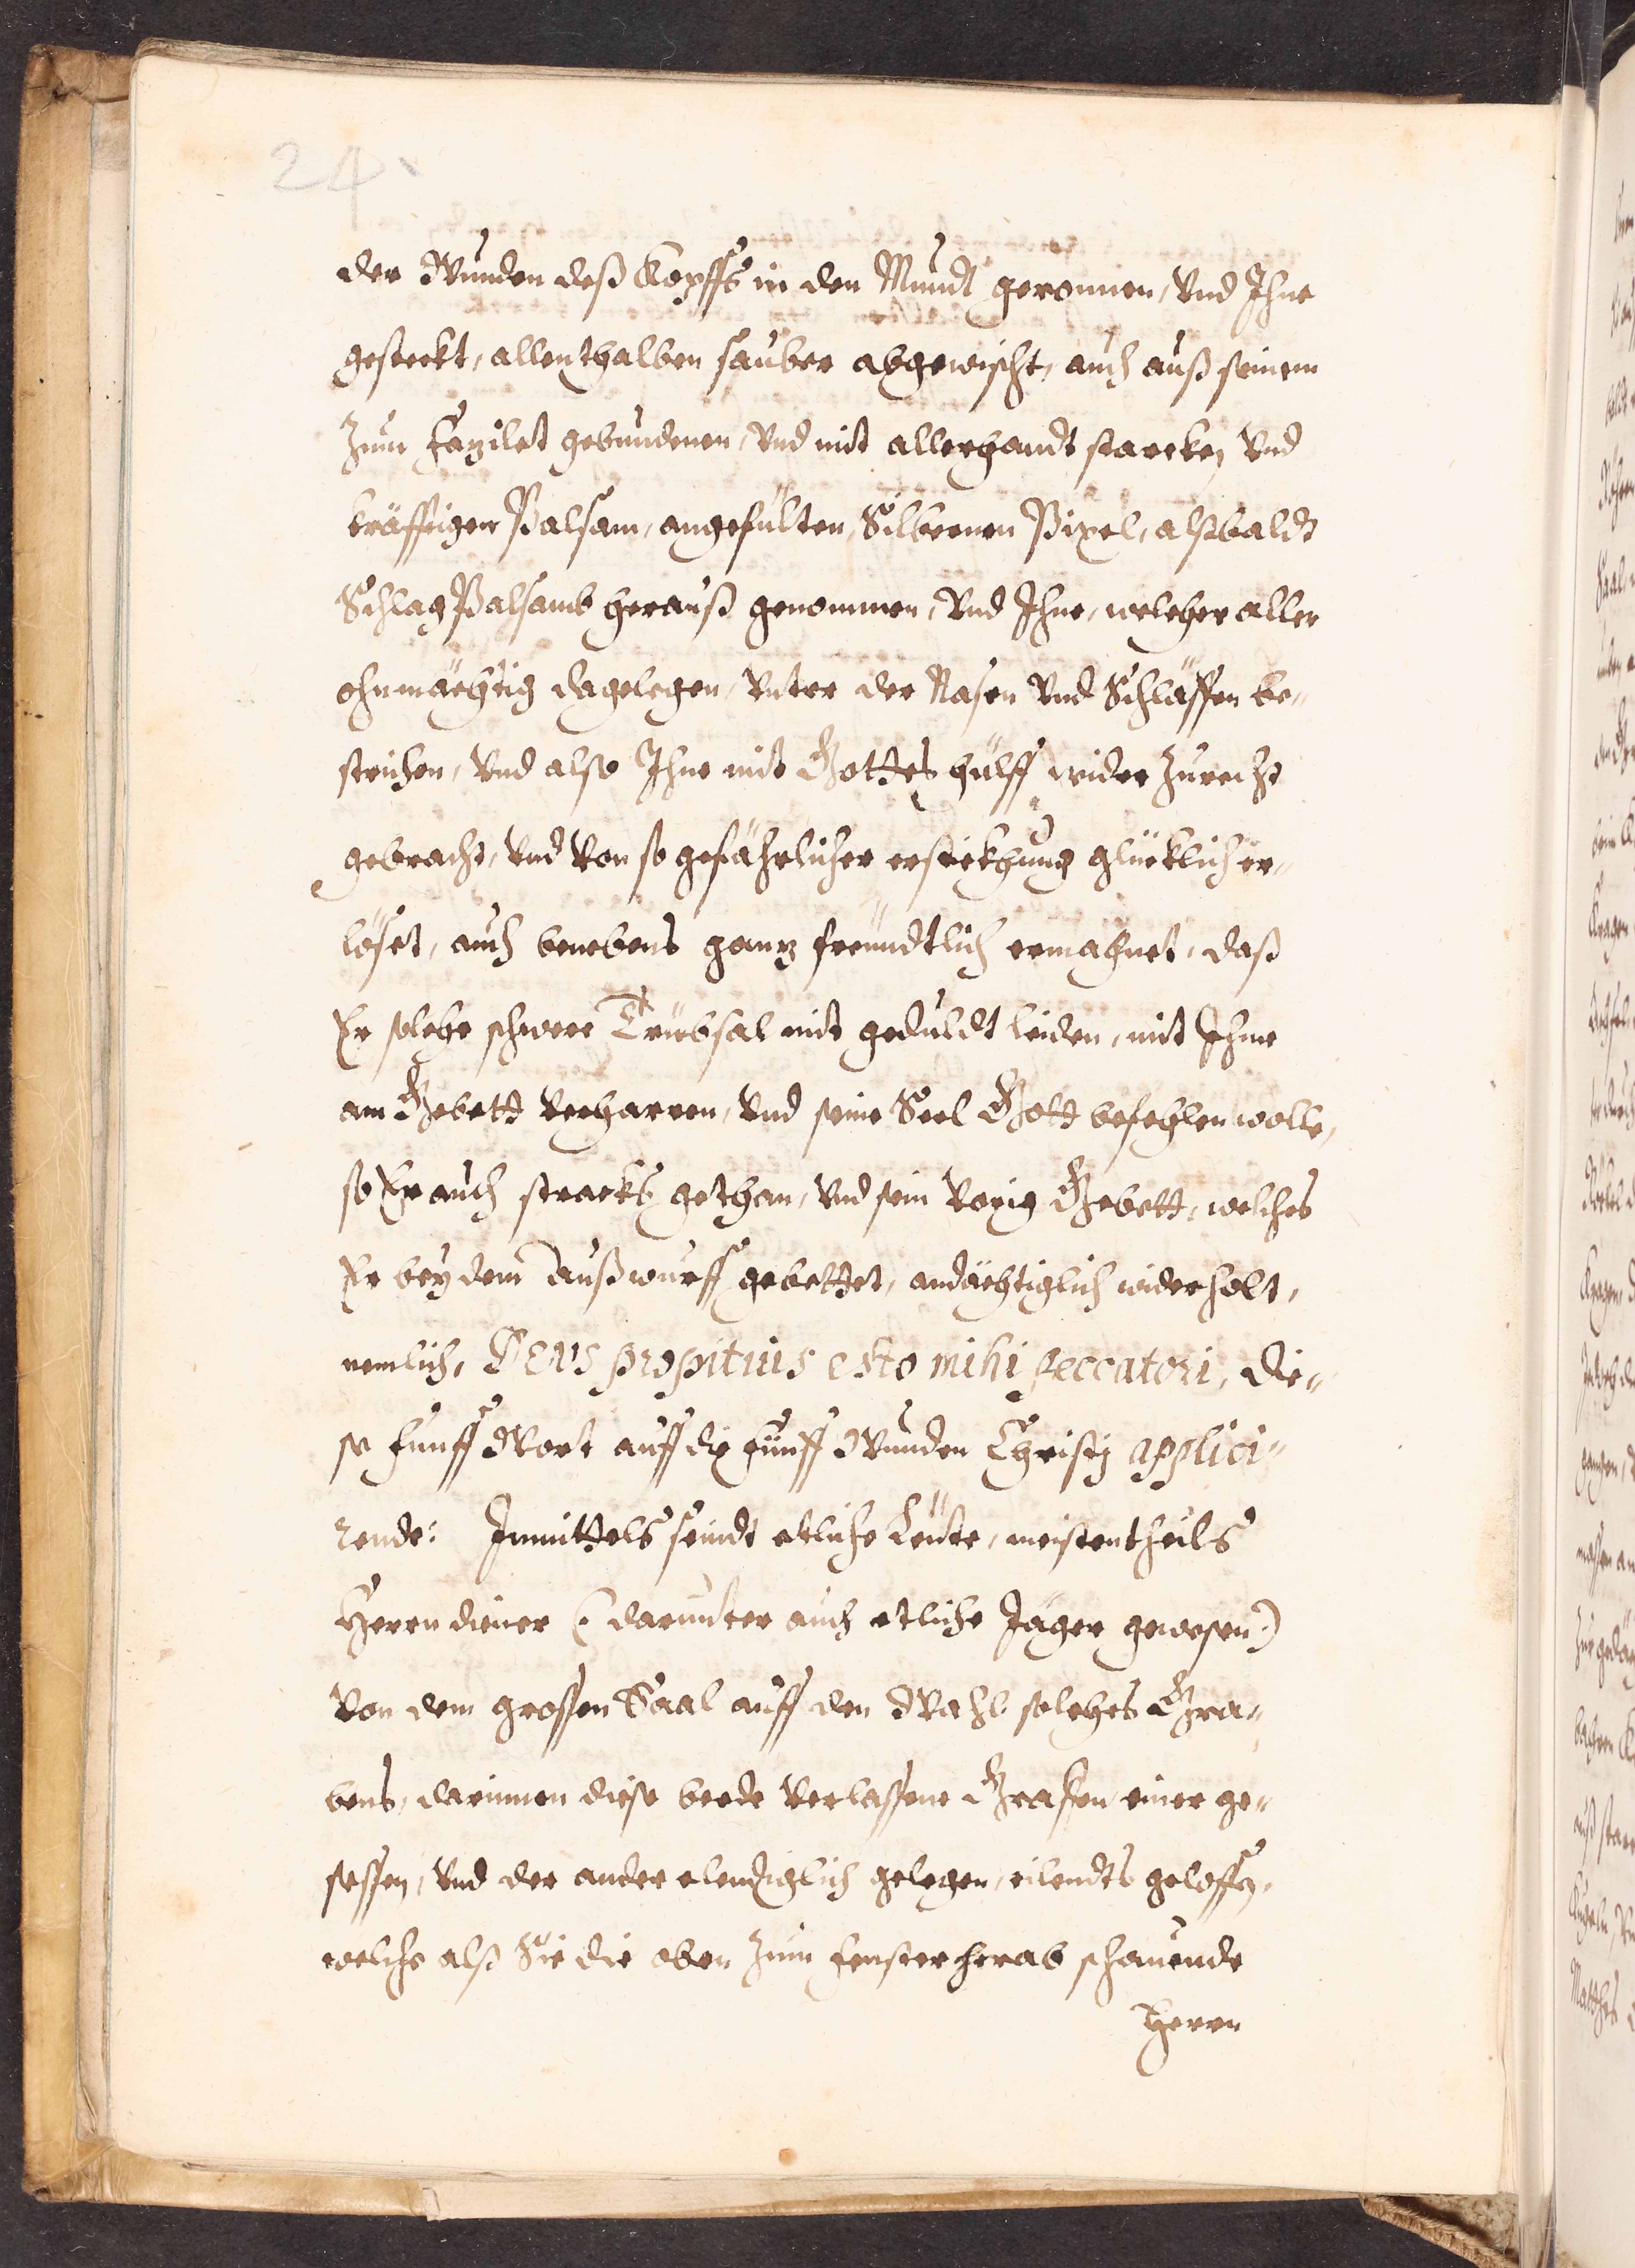 24
der Wunden deß Kopffs in den Mundt geronnen, Vnd Ihne
gesteckt, allenthalben sauber abgewischt, auch auß seinem
zum Fazilet gebundenen, Vnd mit allerhandt starcken Vnd
kräfftigen Palsam, angefülten, Silbernen Pixel, alßbaldt
Schlag Palsamb herauß genommen, Vnd Ihne, welcher aller
ohnmächtig dagelegen, Vnter der Nasen Vnd Schläffen be„
strichen, Vnd also Ihne mit Gottes hülff wider zurecht
gebracht, Vnd Von so gefährlicher ersteckhung glücklich er„
löset, auch benebens ganz freündtlich ermahnet, daß
Er solche schwere Trüebsal mit geduldt leiden, mit Ihme
am Gebett Verharren, Vnd seine Seel Gott befehlen wolle,
so Er auch stracks gethan, Vnd sein Vorig Gebett, welches
Er bey dem außwurff gebettet, andächtiglich widerholt,
nemlich, DEVS propitius esto mihi peccatori, die„
se fünff Wort auff die fünff Wunden Christj applici„
rende: Inmittels seindt etliche Leüte, meistentheils
Herrn diener (: darunter auch etliche Jäger gewesen:)
Von dem grossen Saal auff den Wahl solches Gra„
bens, darinnen diese beede Verlassene Grafen, einer ge„
sessen, Vnd der ander elendiglich gelegen, eilendts geloffen,
welche alß Sie die oben zum Fenster herab schauende
Herrn